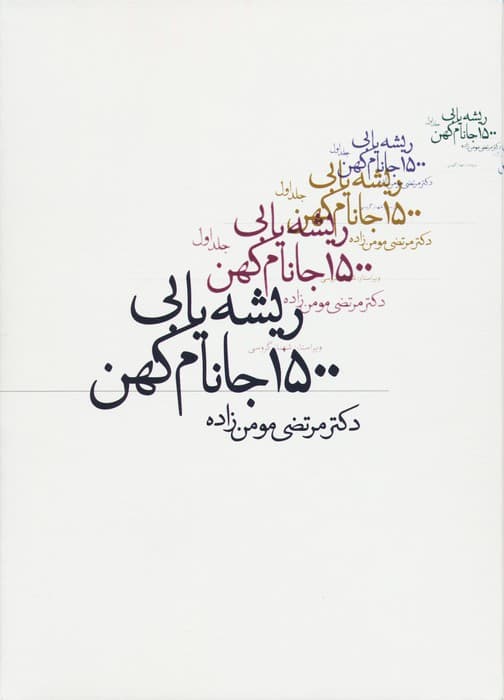 ریشه‌یابی
۱۵۰۰ جانام کهن
جلد اول
ریشه‌یابی
۱۵۰۰ جانام کهن
جلد اول
دکتر مرتضی مومن‌زاده
ریشه‌یابی
۱۵۰۰ جانام کهن
جلد اول
دکتر مرتضی مومن‌زاده
ریشه‌یابی
۱۵۰۰ جانام کهن
جلد اول
دکتر مرتضی مومن‌زاده
ریشه‌یابی
ویراستار:
۱۵۰۰ جانام کهن
دکتر مرتضی مومن‌زاده